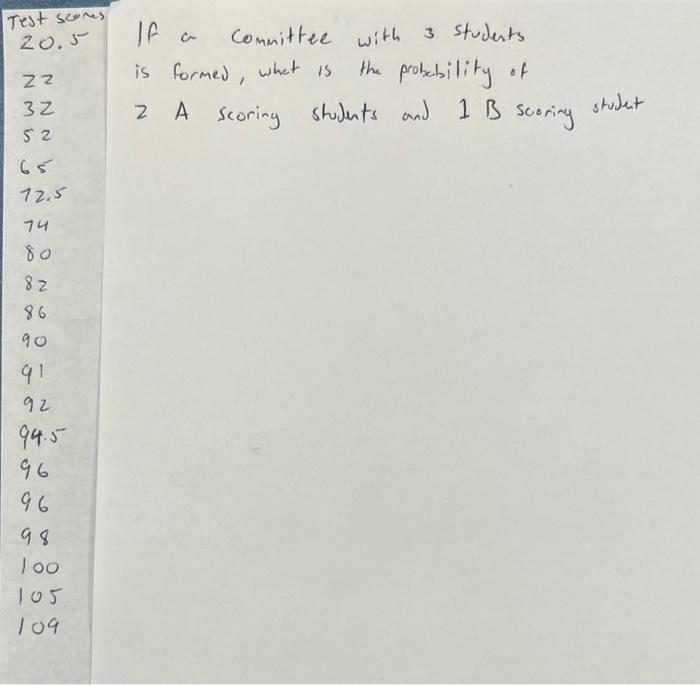 Test scores
20.5
22
32
52
65
72.5
74
80
82
86
90
91
92
94.5
96
96
98
100
105
109
If a committee with 3 students
is formed, what is the probability of
2 A scoring students and 1 B scoring student